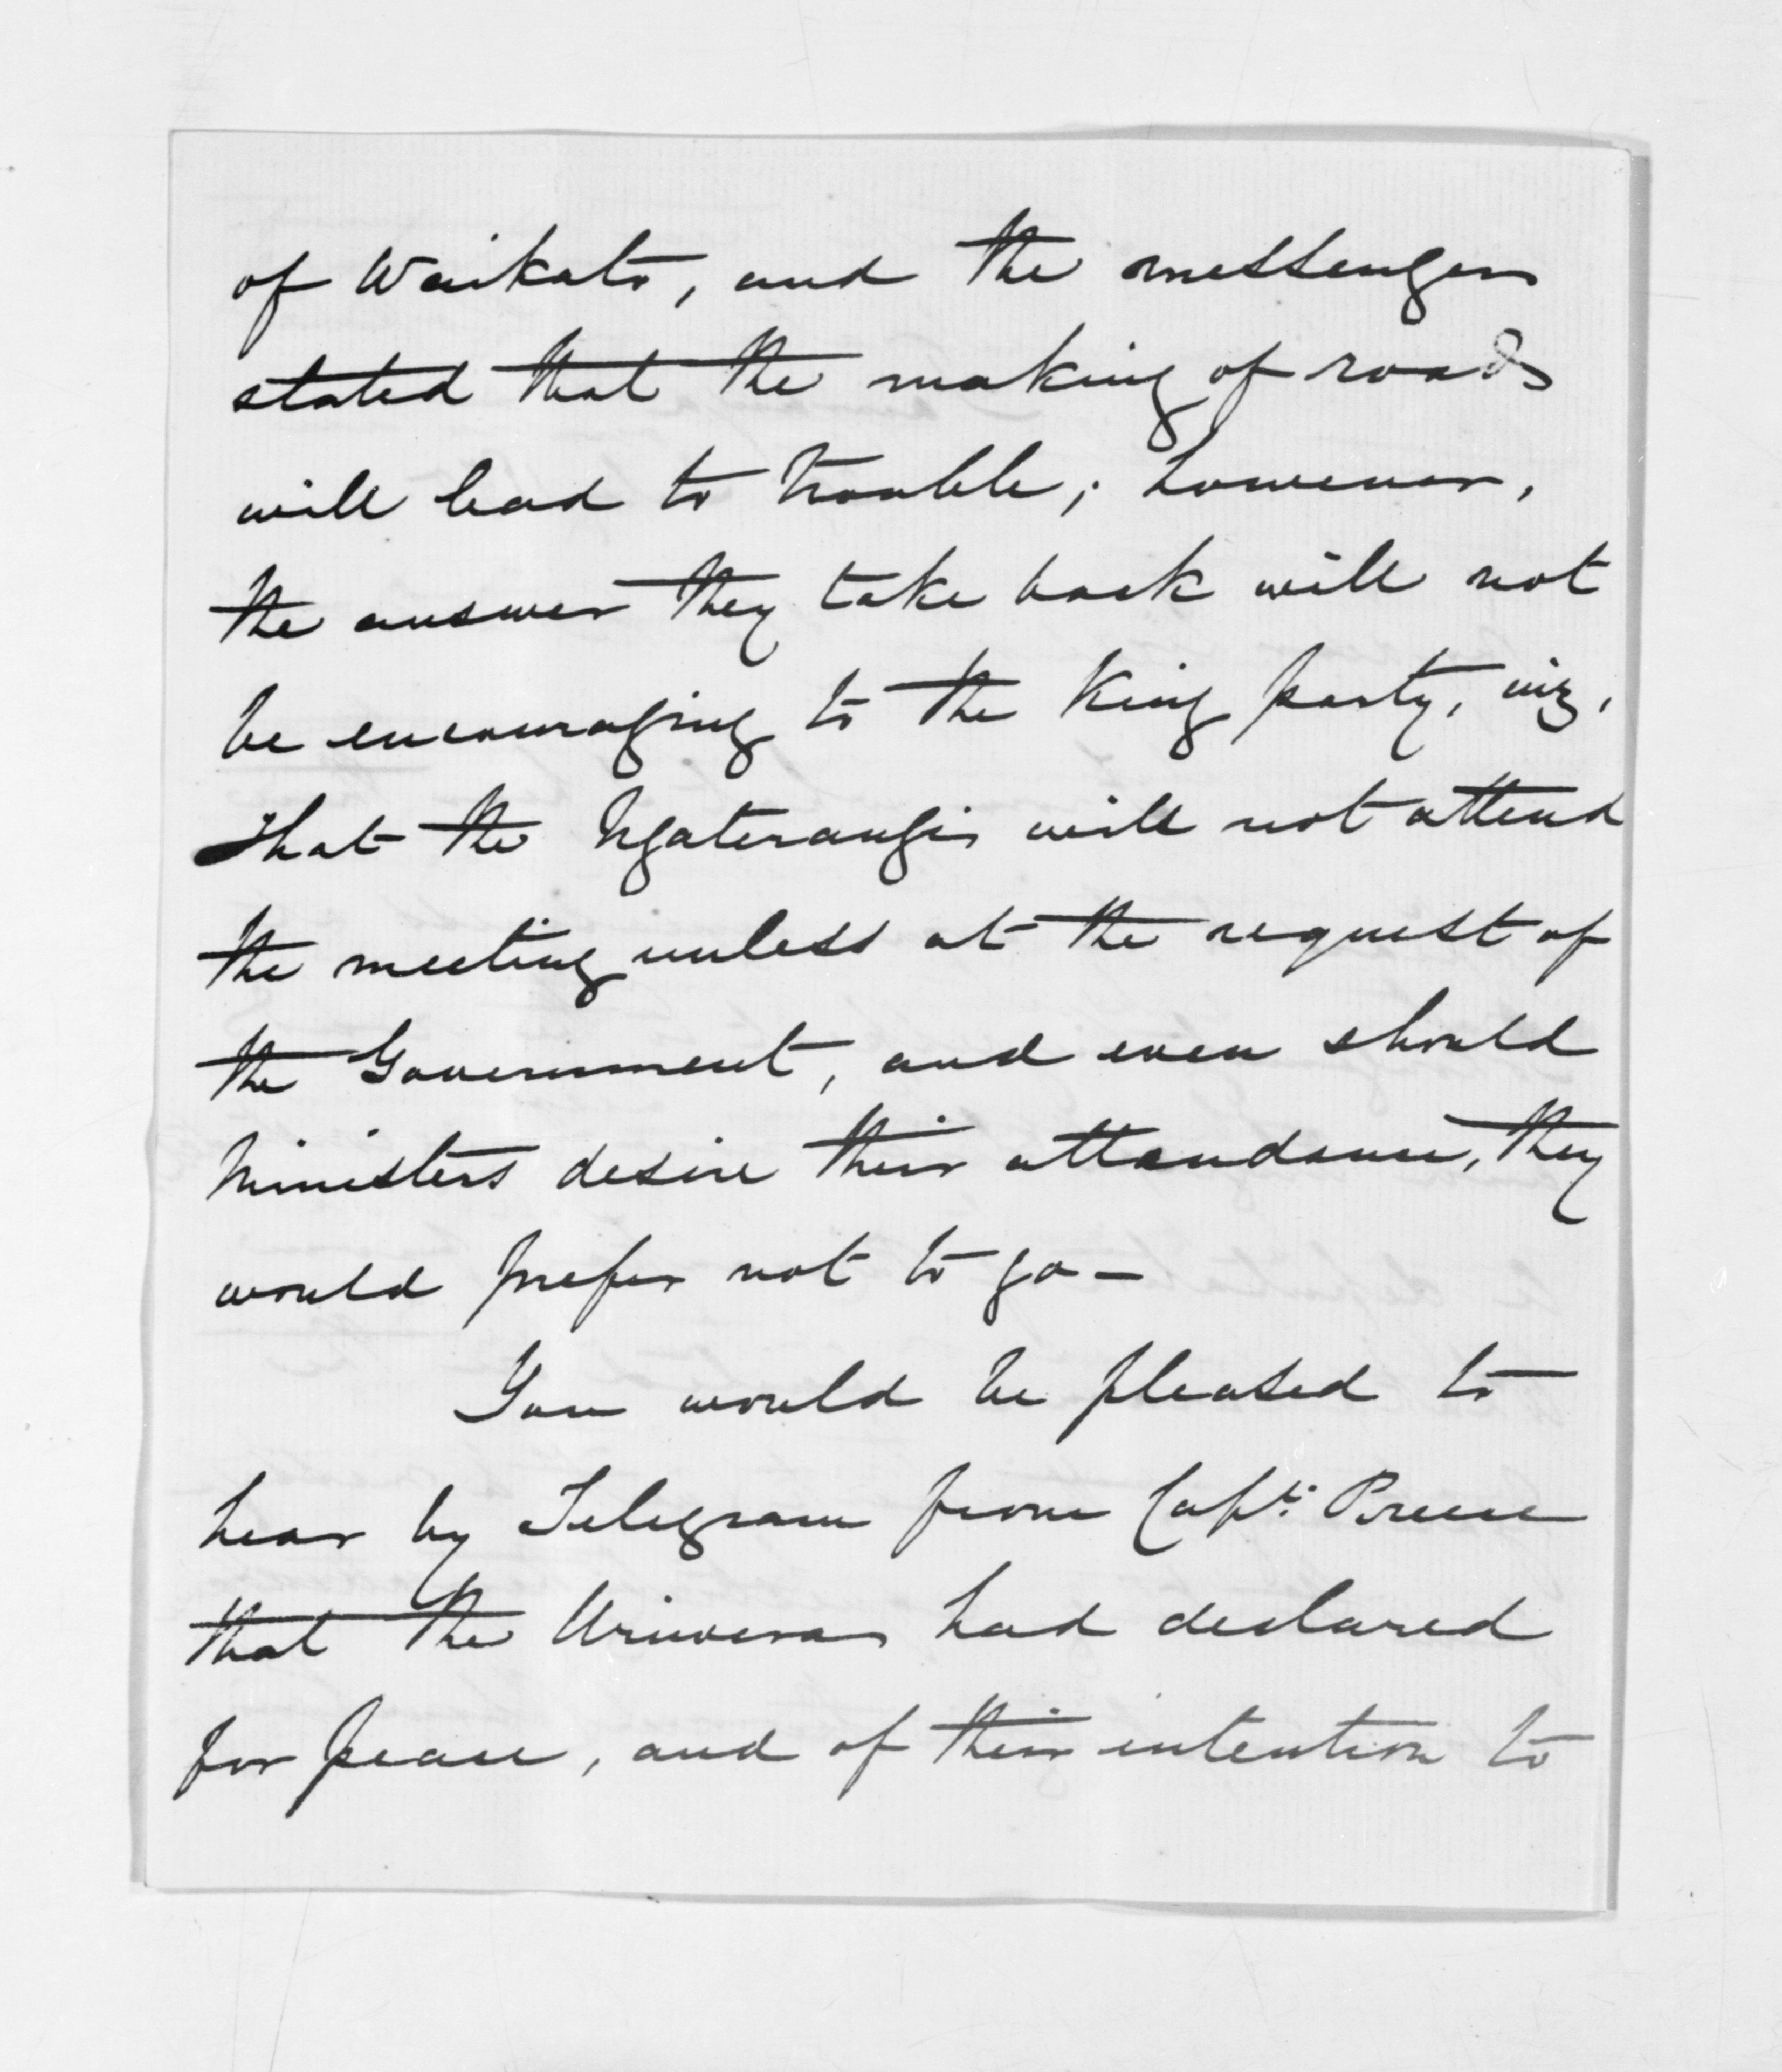 of Waikato, and the messengers
stated that the making of roads
will lead to trouble; however,
the answer they take back will not
be encouraging to the King party, viz,
that the Ngaterangis will not attend
the meeting unless at the request of
the Government, and even should
Ministers desire their attendance, they
would prefer not to go —
You would be pleased to
hear by Telegram from Capt. Preece
that the Uriweras had declared
for peace, and of their intention to